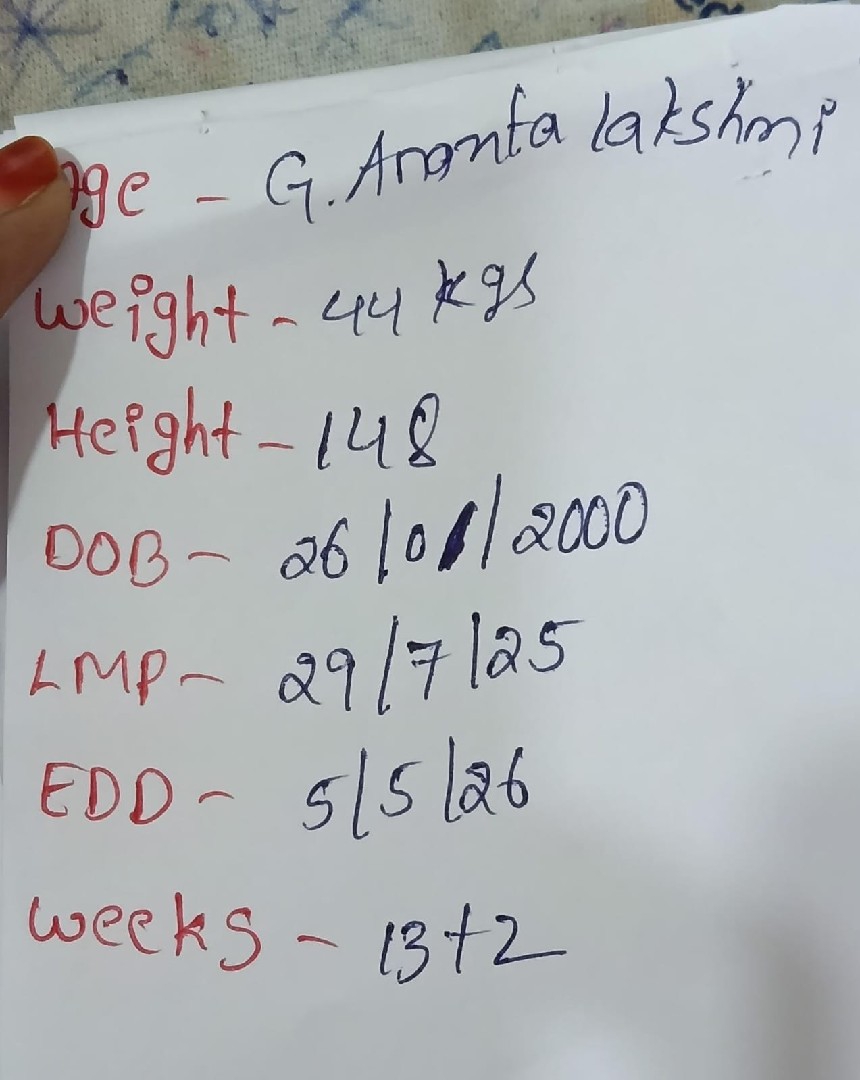 Age - G. Ananta lakshmi
weight - 44 kgs
Height - 148
DOB - 26/01/2000
LMP - 29/7/25
EDD - 5/5/26
weeks - 13+2